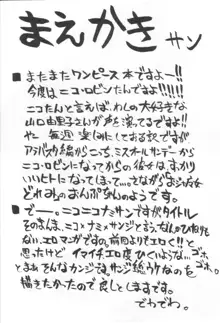 まえかき サン
■またまたワンピース本ですよー!!
今度はニコ・ロビンたんですよ!!
ニコたんと言えば、わしの大好きな
山口由里子さんが声を演ってるですよ!!
やー毎週楽しみにしておる訳ですが
アラバスタ編からこっち、ミスオールサンデーから
ニコ・ロビンになってからの彼女は、すっかり
いいヒトになってしまって…。さながら
どれみのおんぷちゃんのようです。
■でー。ニコニコナミサンですがタイトル
そのまんま、ニコ×ナミ×サンジという、なんかひねりも
ない、エロマンガです。前回よりもエロく!!と
思ったけど イマイチエロ度ひくいような…。
とまぁそんなカンジで。サンジ総ウケなのを
描きたかったので良しとしますです。
でわでわ。